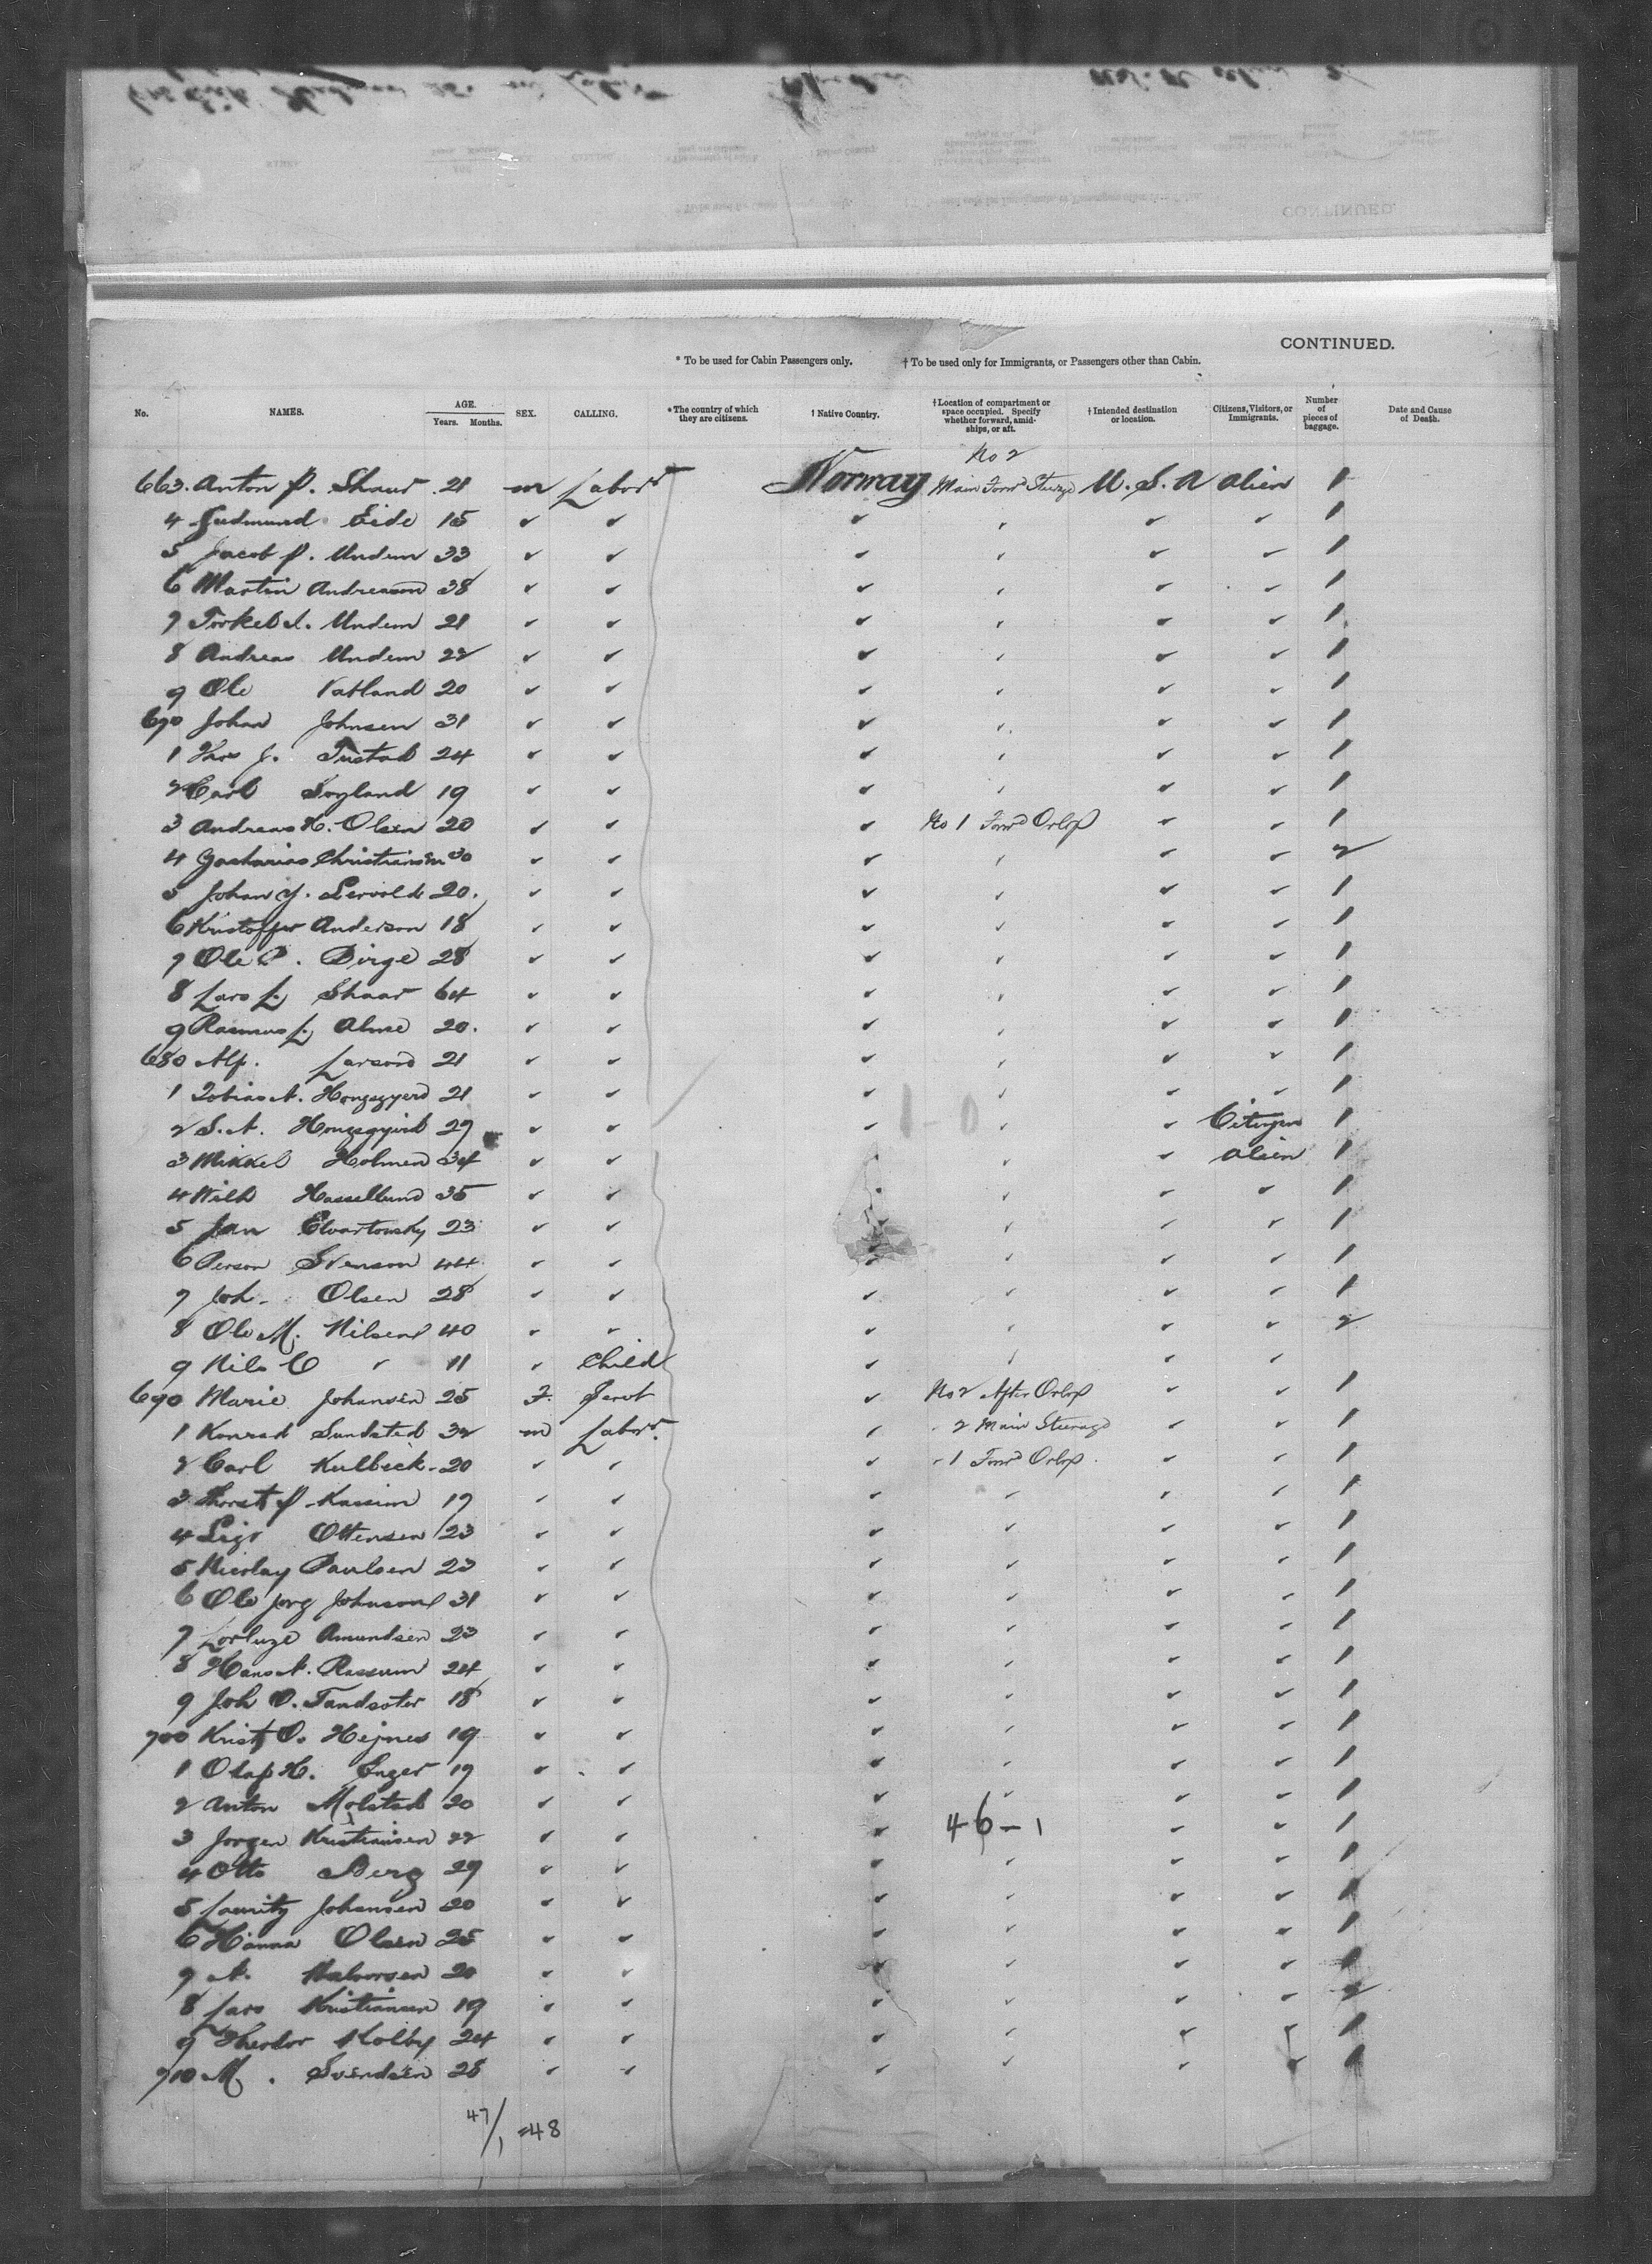 CONTINUED.
* To be used for Cabin Passengers only. † To be used only for Immigrants, or Passengers other than Cabin.
No. NAMES. AGE. Years. Months. SEX. CALLING. * The country of which they are citizens. † Native Country. † Location of compartment or space occupied. Specify whether forward, amidships, or aft. † Intended destination or location. Citizens, Visitors, or Immigrants. Number of pieces of baggage. Date and Cause of Death.
No 2
663. Anton P. Shaar 21 m Labor Norway Main Forwd Steerge U.S.A alien 1
4 Gudmund Eide 15 1
5 Jacob P. Undem 33 1
6 Martin Andreason 38 1
7 Torkel I. Undem 21 1
8 Andreas Undem 22 1
9 Ole Vatland 20 1
670 Johan Johnsen 31 1
1 Thos J. Tustad 24 1
2 Carl Soyland 19 1
3 Andreas H. Olsen 20 No 1 Forwd Orlop 1
4 Zacharias Christiansen 30 2
5 Johan J. Lervold 20. 1
6 Kristoffer Anderson 18 1
7 Ole P. Birge 28 1
8 Lars L. Shaar 64 1
9 Rasmus L. Alme 20. 1
680 Alf. Larson 21 1
1 Tobias A. 21 1
2 S. A. 29 Citizen 1
3 Mikkel Holmen 34 alien 1
4 Wilh Hassellund 35 1
5 Jan 23 1
6 Person Svenson 44 1
7 Joh. Olsen 28 1
8 Ole M. Nilsen 40 2
9 Nils O " 11 Child
690 Marie Johansen 25 F. Servt No 2 After Orlop 1
1 Konrad Sundsted 32 m Labor. - 2 Main Steerage 1
2 Carl Kulbeck 20 - 1 Forwd Orlop. 1
3 Thorst P. 19 1
4 Ottensen 23 1
5 Nicolay Paulsen 23 1
6 Ole Jorg Johnson 31 1
7 Amundsen 23 1
8 Hans A. Rassum 24 1
9 Joh O. Tandsoter 18 1
700 Krist O. Hejnes 19 1
1 Olaf H. Enger 19 1
2 Anton Molstad 20 1
3 Jorgen Kristiansen 22 46-1 1
4 Otto Berg 29 1
5 Lauritz Johansen 20 1
6 Hanna Olsen 25 1
7 A. Halvorsen 20 1
8 Lars Kristiansen 19 2
9 Theodor Kolby 24 1
710 M. Svendsen 28 1
47/1 = 48